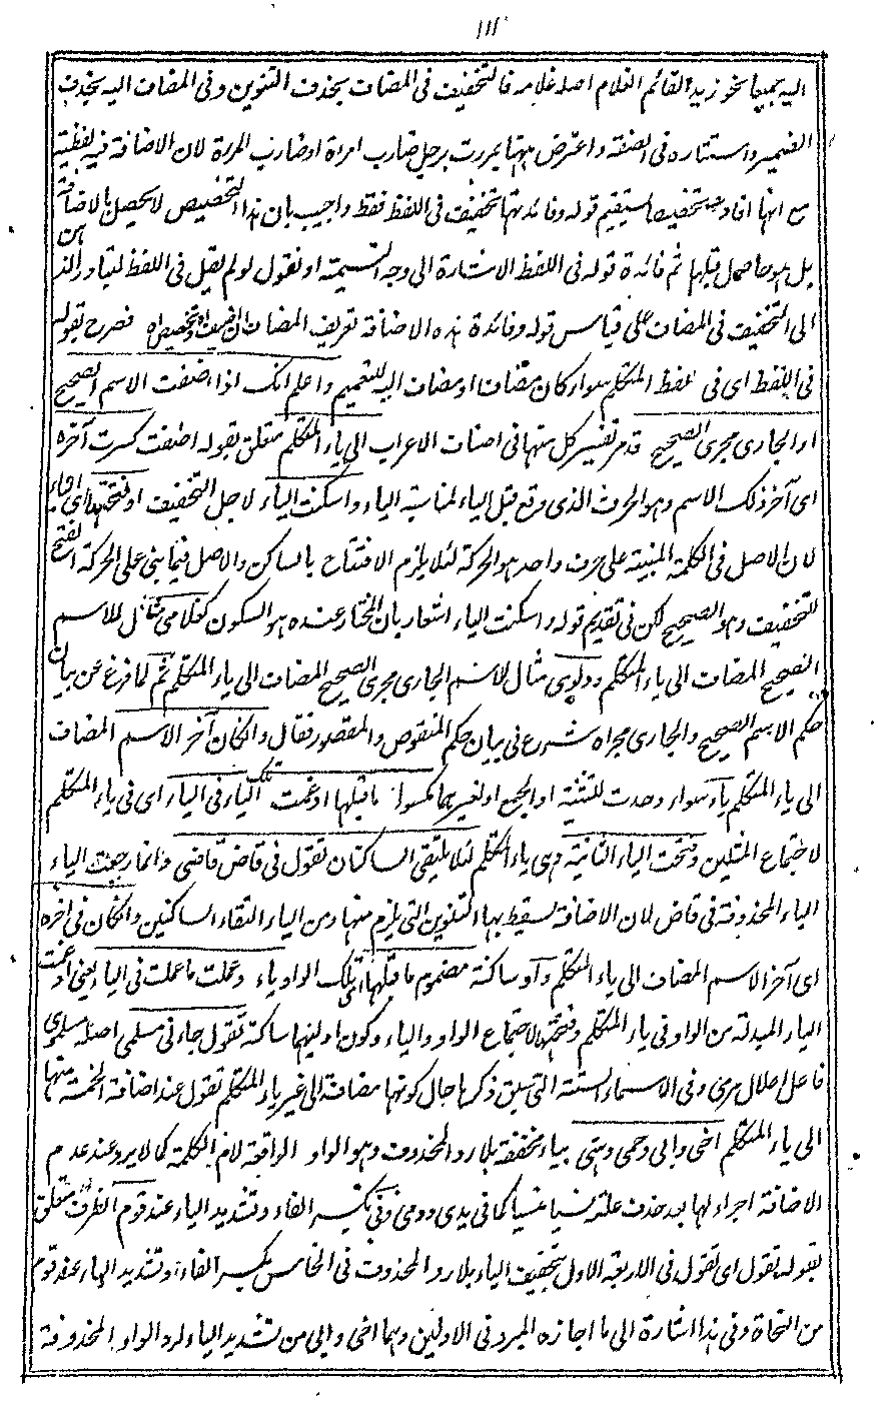 ١١١
اليه جميعا نحو زيد القائم الغلام اصله غلامه فالتخفيف فى المضاف بحذف التنوين وفى المضاف اليه بحذف
الضمير واستتاره فى الصفة واعترض ههنا بمررت برجل ضارب امراة او ضارب المرءة لان الاضافة فيه لفظية
مع انها افادت تخفيفا فلا يستقيم قوله وفائدتها تخفيف فى اللفظ فقط واجيب بان هذا التخصيص لا يحصل بالاضافة
بل هو حاصل قبلها ثم فائدة قوله فى اللفظ الاشارة الى وجه التسمية او نقول لو لم يقل فى اللفظ لتبادر الذهن
الى التخفيف فى المضاف على قياس قوله وفائدة هذه الاضافة تعريف المضاف ان اضيف او تخصيصه فصرح بقوله
فى اللفظ اى فى لفظ المتكلم سواء كان مضافا او مضاف اليه للتعميم واعلم انك اذا اضفت الاسم الصحيح
او الجارى مجرى الصحيح قد مر تفسير كل منهما فى اصناف الاعراب الى ياء المتكلم متعلق بقوله اضفت كسرت آخره
اى آخر ذلك الاسم وهو الحرف الذى وقع قبل الياء لمناسبة الياء واسكنت الياء لاجل التخفيف او فتحتها اى الياء
لان الاصل فى الكلمة المبنية على حرف واحد هو الحركة لئلا يلزم الافتتاح بالساكن والاصل فيما بنى على الحركة الفتح
للتخفيف وهو الصحيح لكن فى تقديم قوله واسكنت الياء اشعار بان المختار عنده هو السكون كغلامى مثال للاسم
الصحيح المضاف الى ياء المتكلم ودلوى مثال للاسم الجارى مجرى الصحيح المضاف الى ياء المتكلم ثم لما فرغ عن بيان
حكم الاسم الصحيح والجارى مجراه شرع فى بيان حكم المنقوص والمقصور فقال وان كان آخر الاسم المضاف
الى ياء المتكلم ياء سواء وجدت للتثنية او الجمع او لغيرهما مكسورا ما قبلها ادغمت تلك الياء فى الياء اى فى ياء المتكلم
لاجتماع المثلين وفتحت الياء الثانية وهى ياء المتكلم لئلا يلتقى الساكنان تقول فى قاض قاضى وانما رجعت الياء
الياء المحذوفة فى قاض لان الاضافة يسقط بها التنوين التى يلزم منها ومن الياء التقاء الساكنين وان كان فى آخره
اى آخر الاسم المضاف الى ياء المتكلم واو ساكنة مضموم ما قبلها تلك الواو ياء وعملت ما عملت فى الياء يعنى ادغمت
الياء المبدلة من الواو فى ياء المتكلم وفتحتها لاجتماع الواو والياء وكون اوليهما ساكنة تقول جاءنى مسلمى اصله مسلموى
فاعل اعلال مرمى وفى الاسماء الستة التى سبق ذكرها حال كونها مضافة الى غير ياء المتكلم تقول عند اضافة الخمسة منها
الى ياء المتكلم اخى وابى وحمى وهنى بياء مخففة بلا رد المحذوف وهو الواو الواقعة لام الكلمة كما لا يرد عند عدم
الاضافة اجراء لها بعد حذف علته نسيا منسيا كما فى يدى ودمى وفى بكسر الفاء وتشديد الياء عند قوم الظرف متعلق
بقوله تقول اى تقول فى الاربعة الاول بتخفيف الياء بلا رد المحذوف فى الخامس بكسر الفاء وتشديد الياء عند قوم
من النحاة وفى هذا اشارة الى ما اجازه المبرد فى الاولين وهما اخى وابى من تشديد الياء لرد الواو المحذوفة